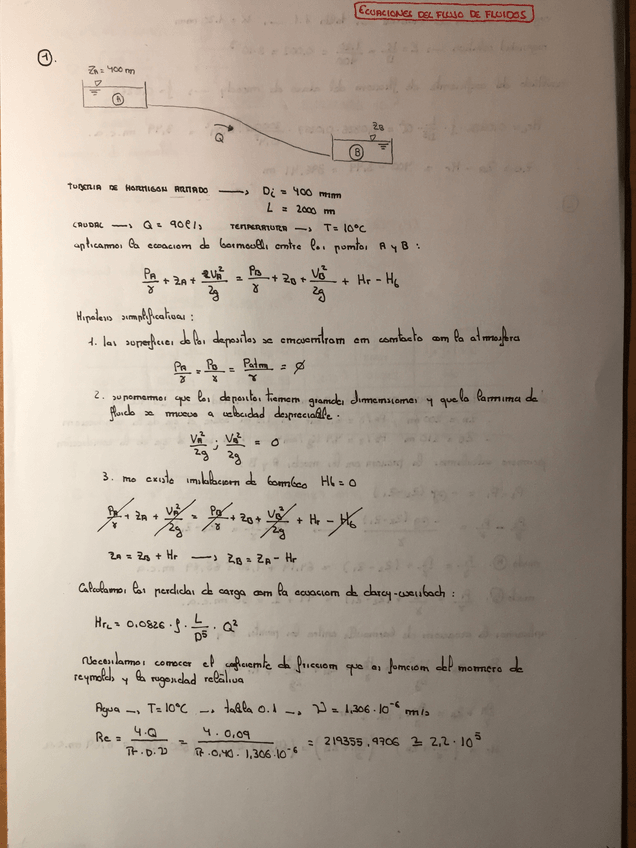 ECUACIONES DEL FLUJO DE FLUIDOS
1.
ZA = 400 m
A
Q
ZB
B
TUBERIA DE HORMIGON ARMADO → Di = 400 mm
L = 2000 m
CAUDAL → Q = 90 l/s TEMPERATURA → T = 10°C
aplicamos la ecuacion de bernoulli entre los puntos A y B :
PA/γ + ZA + VA²/2g = PB/γ + ZB + VB²/2g + Hr - Hb
Hipotesis simplificativas :
1. las superficies de los depositos se encuentran en contacto con la atmosfera
PA/γ = PB/γ = Patm/γ = ∅
2. suponemos que los depositos tienen grandes dimensiones y que la lamina de
fluido se mueve a velocidad despreciable.
VA²/2g ; VB²/2g = 0
3. no existe instalacion de bombeo Hb = 0
PA/γ + ZA + VA²/2g = PB/γ + ZB + VB²/2g + Hr - Hb
ZA = ZB + Hr → ZB = ZA - Hr
Calculamos las perdidas de carga con la ecuacion de darcy-weisbach :
HrL = 0,0826 · f · L/D⁵ · Q²
Necesitamos conocer el coeficiente de friccion que es funcion del numero de
reynolds y la rugosidad relativa
Agua → T = 10°C → tabla 0.1 → ν = 1,306 · 10⁻⁶ m/s
Re = 4·Q/π·D·ν = 4 · 0,09/π · 0,40 · 1,306·10⁻⁶ = 219355,9706 ≅ 2,2 · 10⁵